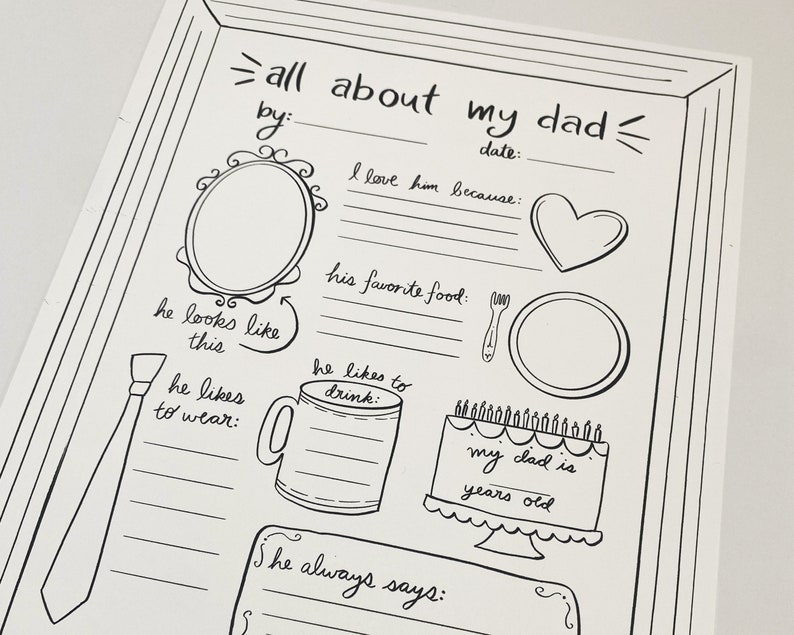 all about my dad
by:
date:
I love him because:
his favorite food:
he looks like
this
he likes
to wear:
he likes to
drink:
my dad is
years old
he always says: